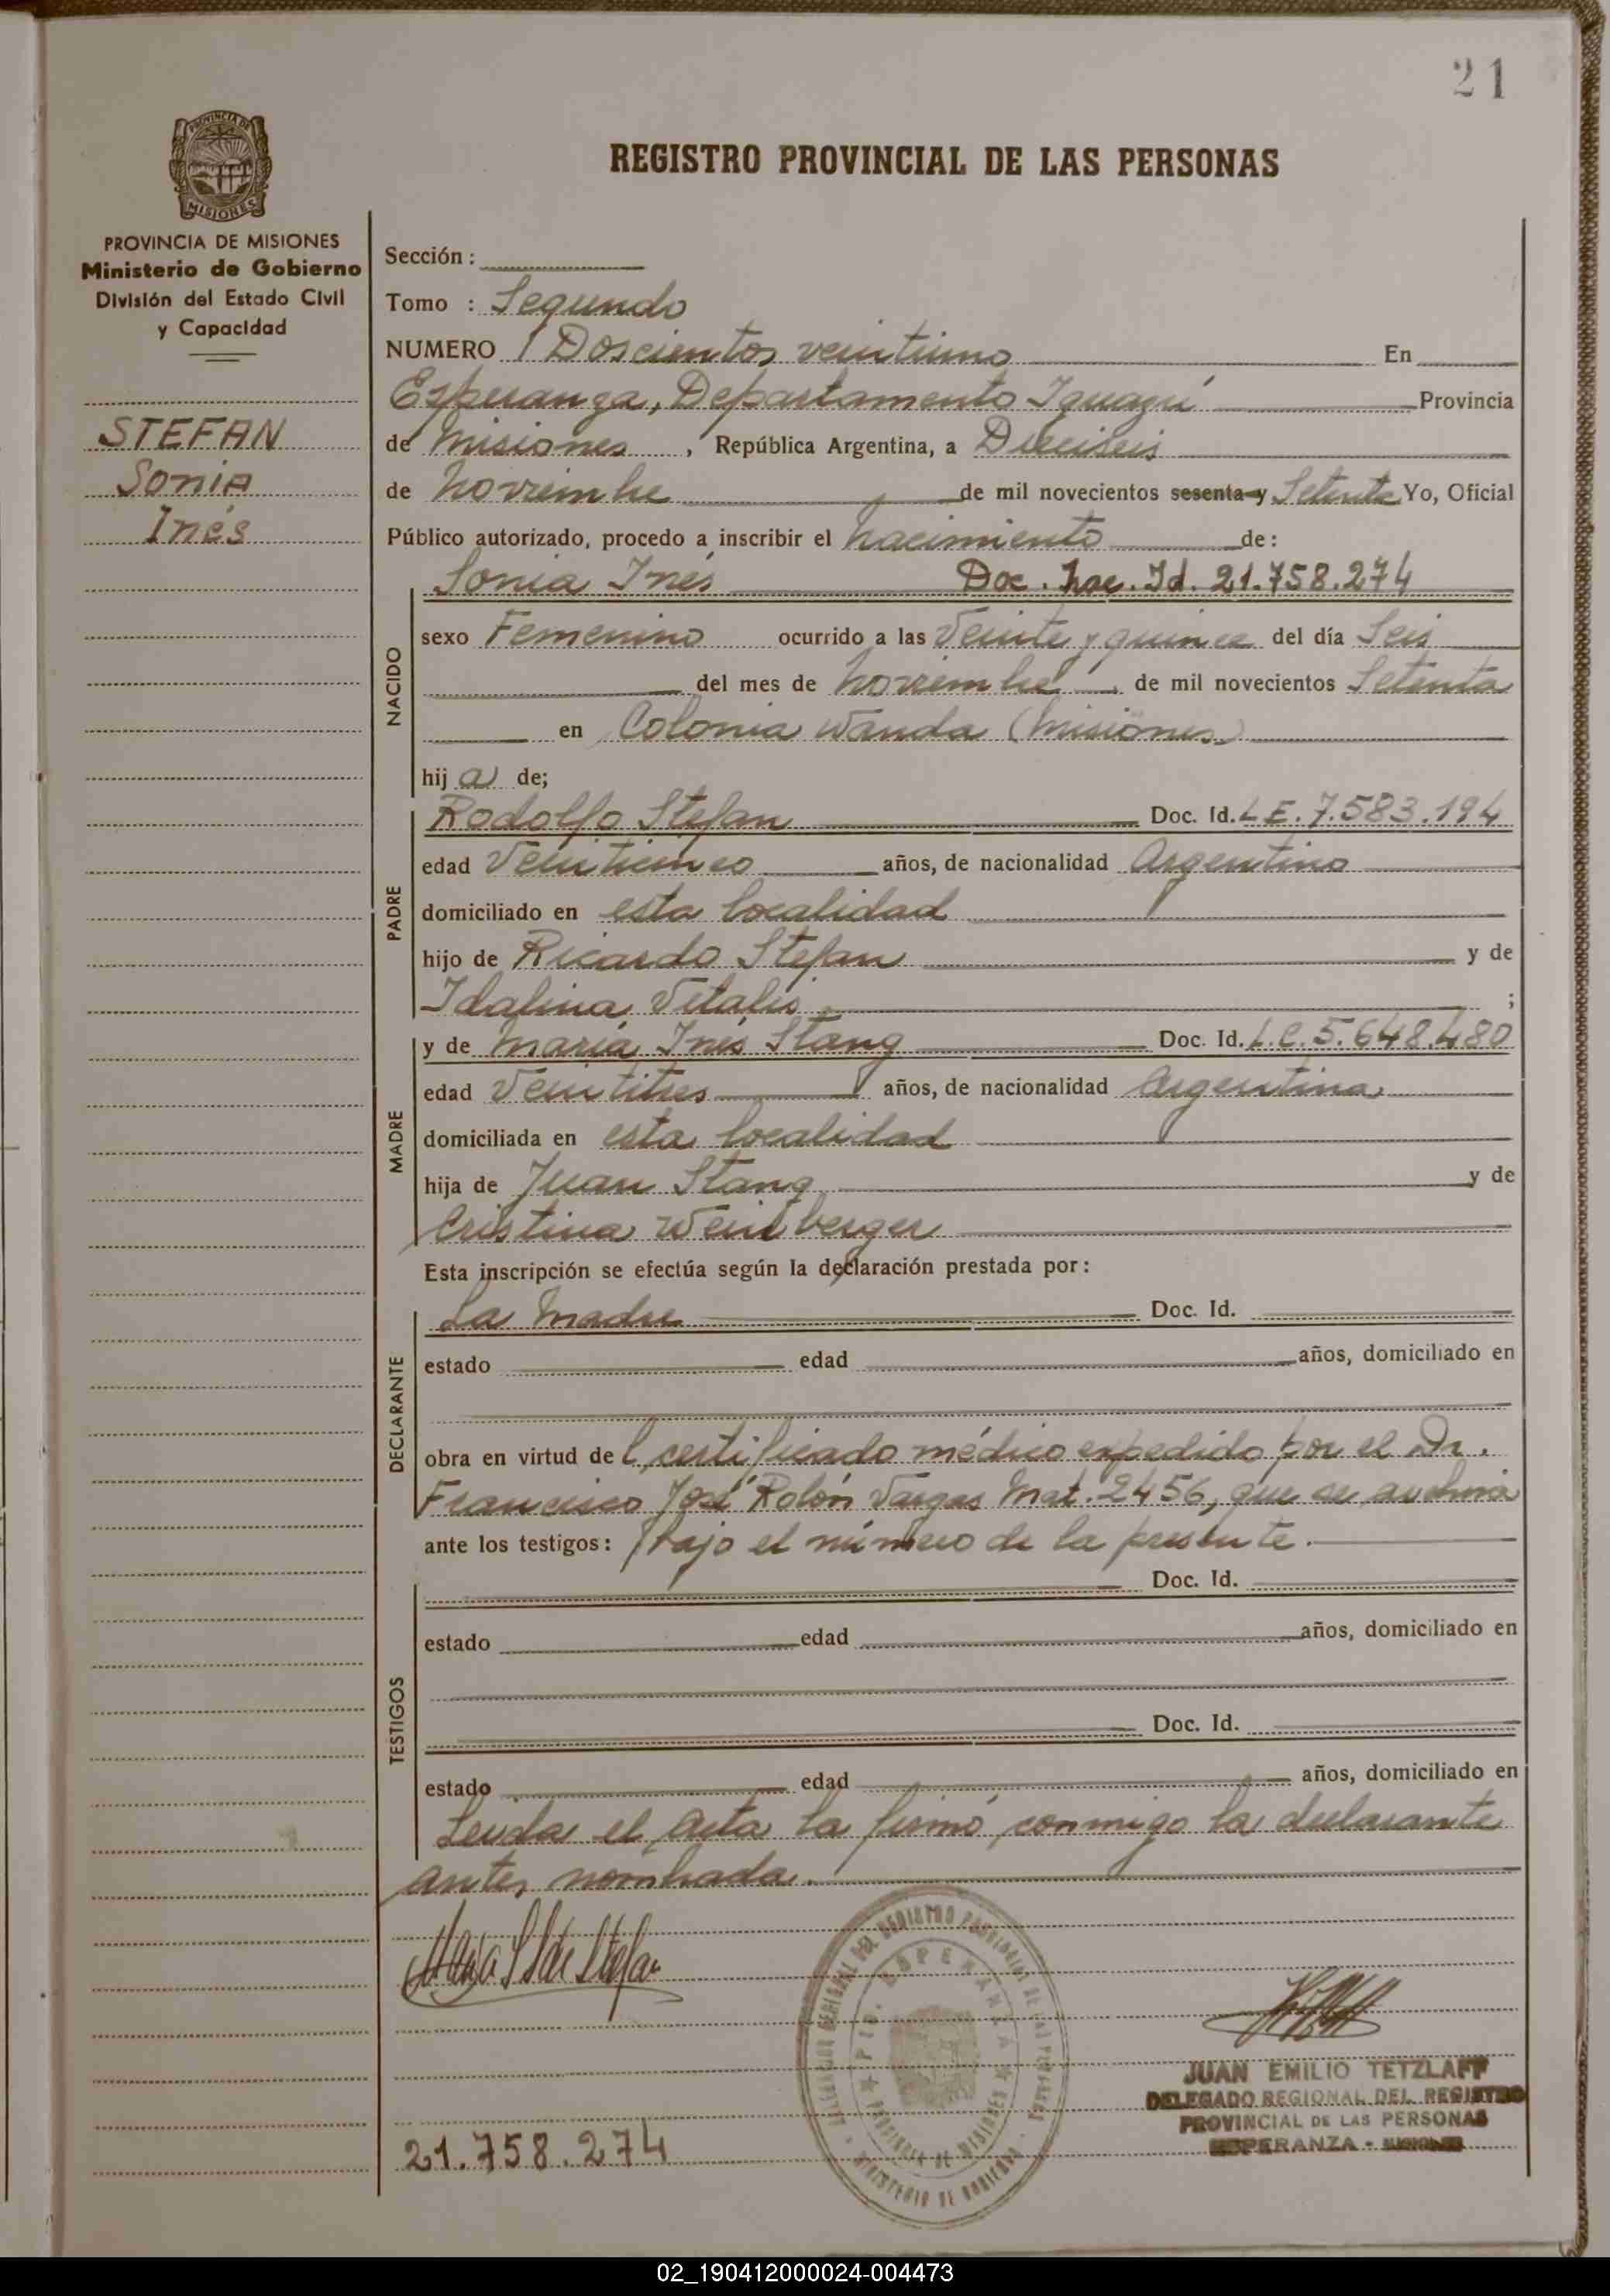 21
PROVINCIA DE
MISIONES
REGISTRO PROVINCIAL DE LAS PERSONAS
PROVINCIA DE MISIONES
Ministerio de Gobierno
División del Estado Civil
y Capacidad
STEFAN
Sonia
Inés
Sección :
Tomo : Segundo
NUMERO Doscientos veintiuno En
Esperanza, Departamento Iguazú Provincia
de Misiones , República Argentina, a Dieciseis
de noviembre de mil novecientos sesenta y Setenta Yo, Oficial
Público autorizado, procedo a inscribir el nacimiento de :
Sonia Inés Doc. Nac. Id. 21.758.274
NACIDO
sexo Femenino ocurrido a las Veinte y quince del día Seis
del mes de noviembre de mil novecientos Setenta
en Colonia Wanda (Misiones)
hij a de;
PADRE
Rodolfo Stefan Doc. Id. L.E. 7.583.194
edad Veinticinco años, de nacionalidad Argentino
domiciliado en esta localidad
hijo de Ricardo Stefan y de
Idalina Vitalis ;
MADRE
y de María Inés Stang Doc. Id. L.C. 5.648.480
edad Veintitres años, de nacionalidad Argentina
domiciliada en esta localidad
hija de Juan Stang y de
Cristina
Esta inscripción se efectúa según la declaración prestada por :
DECLARANTE
La Madre Doc. Id.
estado edad años, domiciliado en
obra en virtud de l certificado médico expedido por el Dr.
Francisco José Rolón Vargas Mat. 2456, que se archiva
ante los testigos : bajo el número de la presente.
TESTIGOS
Doc. Id.
estado edad años, domiciliado en
Doc. Id.
estado edad años, domiciliado en
Leída el acta la firmó conmigo la declarante
antes nombrada.
María S de Stefan
DELEGACION REGIONAL DEL REGISTRO PROVINCIAL DE LAS PERSONAS
PTO. ESPERANZA
PROVINCIA DE MISIONES
MINISTERIO DE GOBIERNO
JUAN EMILIO TETZLAFF
DELEGADO REGIONAL DEL REGISTRO
PROVINCIAL DE LAS PERSONAS
ESPERANZA - MISIONES
21.758.274
02_190412000024-004473